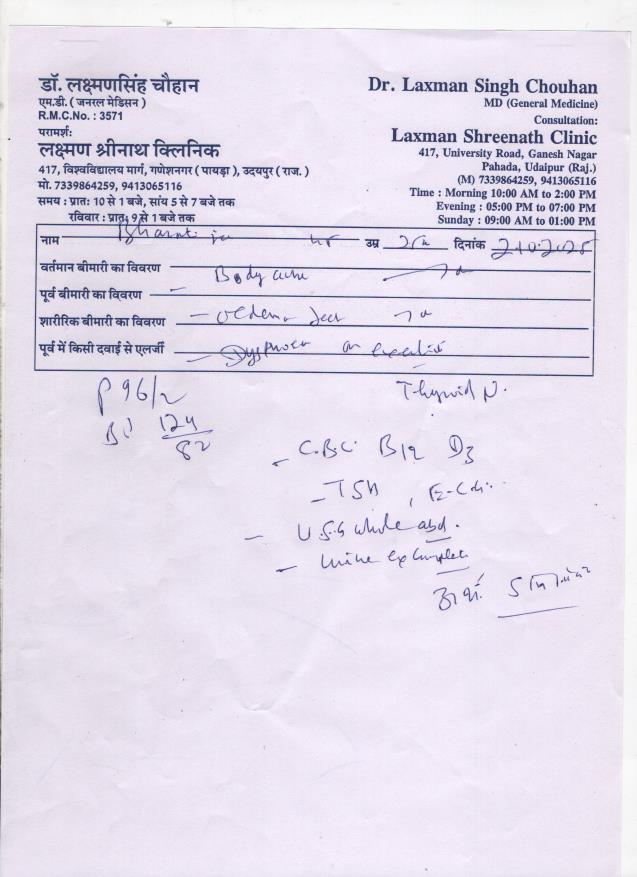 डॉ. लक्ष्मणसिंह चौहान
एम.डी. ( जनरल मेडिसन )
R.M.C.No. : 3571
परामर्श:
लक्ष्मण श्रीनाथ क्लिनिक
417, विश्वविद्यालय मार्ग, गणेशनगर ( पायड़ा ), उदयपुर ( राज. )
मो. 7339864259, 9413065116
समय : प्रातः 10 से 1 बजे, सांय 5 से 7 बजे तक
रविवार : प्रातः 9 से 1 बजे तक
Dr. Laxman Singh Chouhan
MD (General Medicine)
Consultation:
Laxman Shreenath Clinic
417, University Road, Ganesh Nagar
Pahada, Udaipur (Raj.)
(M) 7339864259, 9413065116
Time : Morning 10:00 AM to 2:00 PM
Evening : 05:00 PM to 07:00 PM
Sunday : 09:00 AM to 01:00 PM
नाम Bharati उम्र दिनांक
वर्तमान बीमारी का विवरण Body ache
पूर्व बीमारी का विवरण –
शारीरिक बीमारी का विवरण –
पूर्व में किसी दवाई से एलर्जी – on
P 96/2 Thyroid N.
BP 124/82
– C.B.C. B12 D3
– TSH ,
– U.S.G whole abd.
– Urine ex Complete